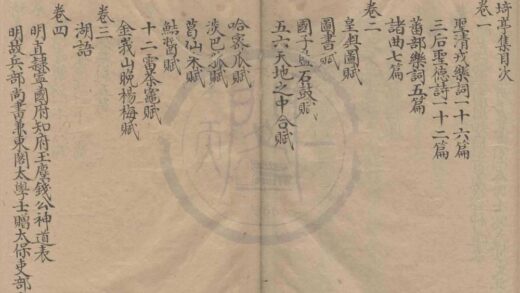 埼亭集目次
卷一
聖清戎樂詞一十六篇
三后聖德詩一十二篇
部樂詞五篇
諸曲七篇
卷二
皇輿圖賦
圖書賦
國子監石鼓賦
五六天地之中合賦
哈密瓜賦
淡巴菰賦
葛仙米賦
鮚醬賦
十二雷茶竈賦
金峩山晚楊梅賦
卷三
湖語
卷四
明直隸寧國府知府玉塵錢公神道表
明故兵部尚書兼東閣大學士贈太保吏部